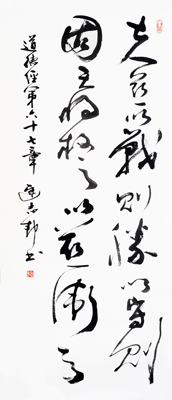 夫慈以戰則勝以守則
固天將救之以慈衛之
道德經第六十七章 志邦书